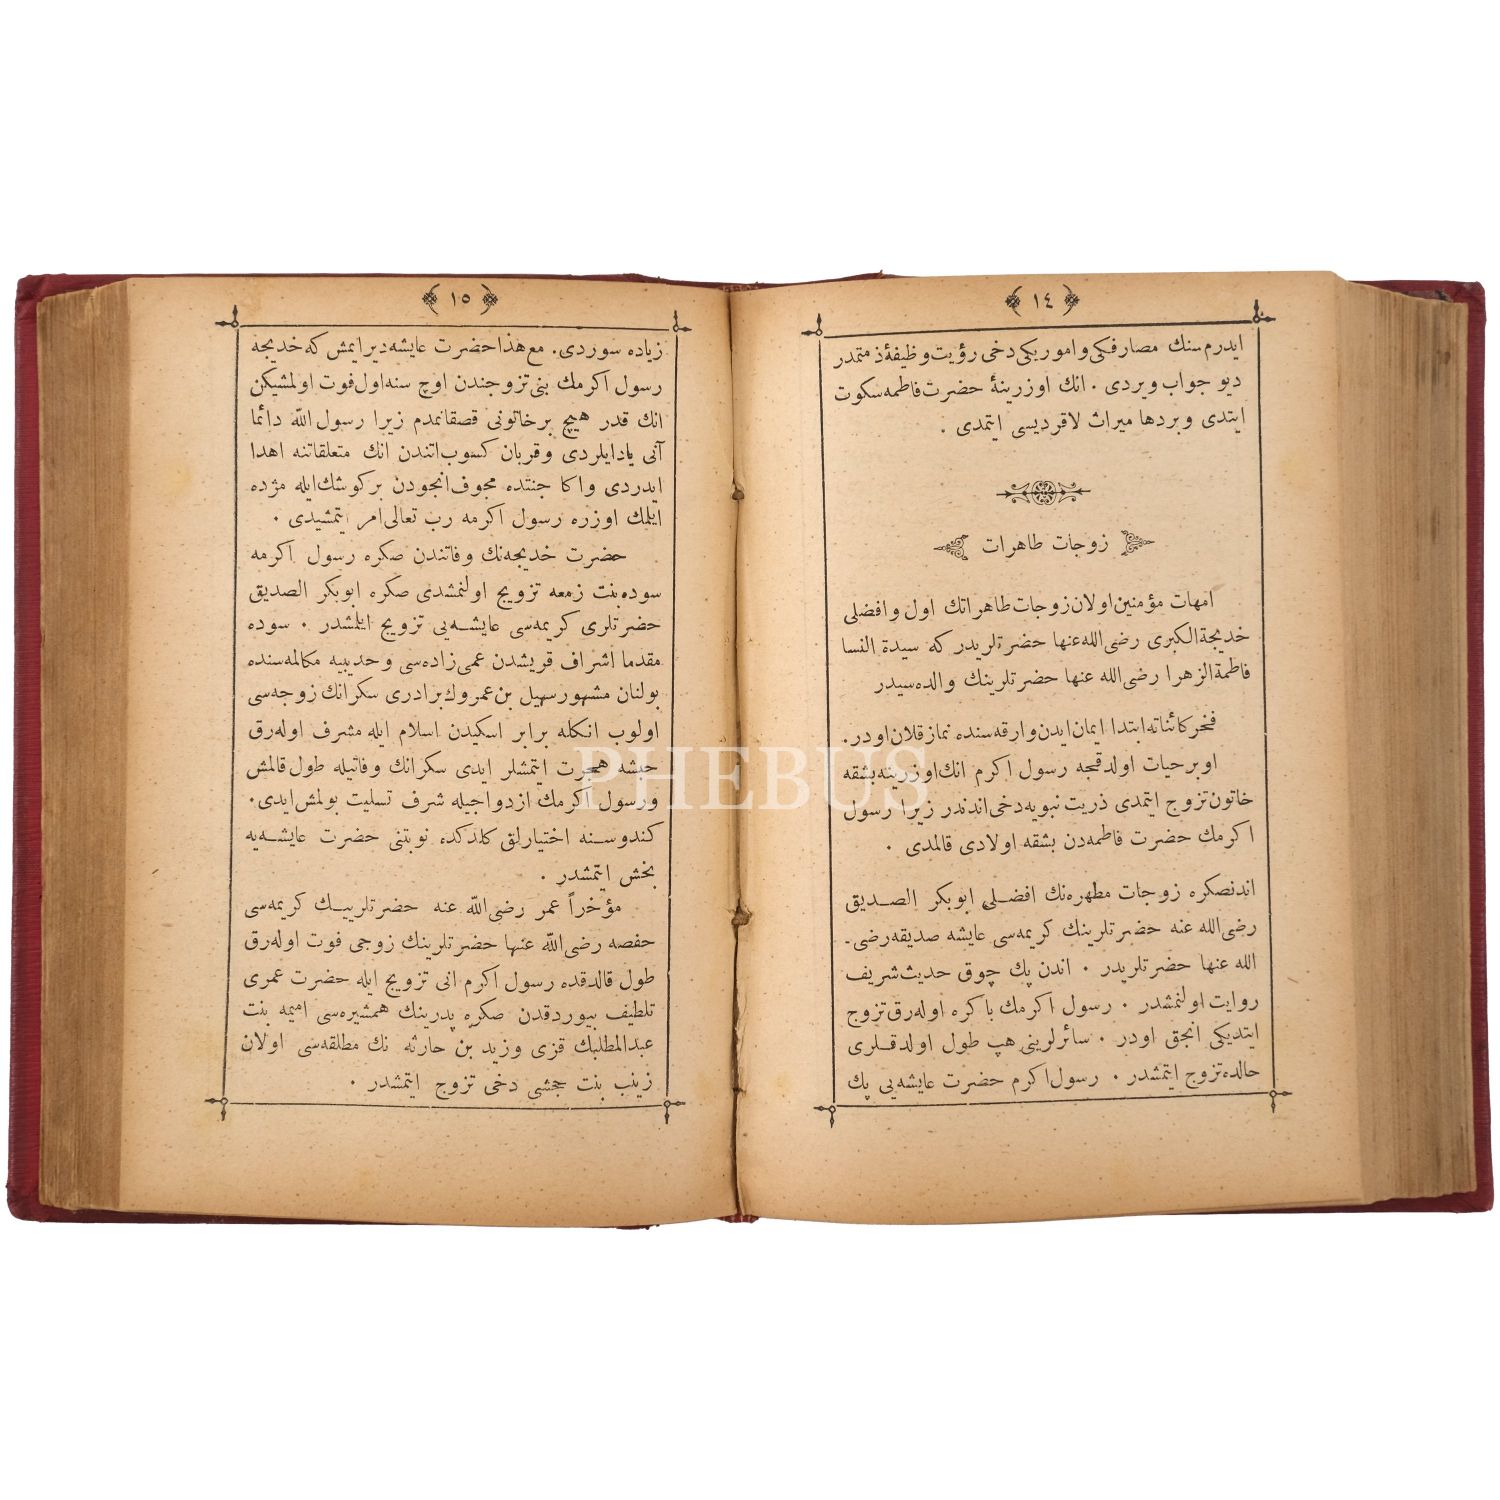 ١٤
ايدرم سنك مصارفكى و اموريكى دخى رؤيت وظيفۀ ذمتمدر
ديو جواب ويردى . انك اوزرينۀ حضرت فاطمه سكوت
ايتدى و بردها ميراث لاقرديسى ايتمدى .
زوجات طاهرات
امهات مؤمنين اولان زوجات طاهراتك اول و افضلى
خديجة الكبرى رضى الله عنها حضرتلريدر كه سيدة النسا
فاطمة الزهرا رضى الله عنها حضرتلرينك والده سيدر
فخر كائناته ابتدا ايمان ايدن و ارقه سنده نماز قلان اودر .
او بر حيات اولدقجه رسول اكرم انك اوزرينه بشقه
خاتون تزوج ايتمدى ذريت نبويه دخى اندندر زيرا رسول
اكرمك حضرت فاطمه دن بشقه اولادى قالمدى .
اندنصكره زوجات مطهره نك افضلى ابوبكر الصديق
رضى الله عنه حضرتلرينك كريمه سى عايشه صديقه رضى-
الله عنها حضرتلريدر . اندن پك چوق حديث شريف
روايت اولنمشدر . رسول اكرمك باكره اوله رق تزوج
ايتديكى انجق اودر . سائرلرينى هپ طول اولدقلرى
حالده تزوج ايتمشدر . رسول اكرم حضرت عايشه يى پك
١٥
زياده سوردى . مع هذا حضرت عايشه ديرايمش كه خديجه
رسول اكرمك بنى تزوجندن اوچ سنه اول فوت اولمشيكن
انك قدر هيچ بر خاتونى قصقانمدم زيرا رسول الله دائما
آنى ياد ايلردى و قربان كسوب اتندن انك متعلقاتنه اهدا
ايدردى و اكا جنتده مجوف انجودن بر كوشك ايله مژده
ايلمك اوزره رسول اكرمه رب تعالى امر ايتمشيدى .
حضرت خديجه نك وفاتندن صكره رسول اكرمه
سوده بنت زمعه تزويج اولنمشدى صكره ابوبكر الصديق
حضرتلرى كريمه سى عايشه يى تزويج ايلمشدر . سوده
مقدما اشراف قريشدن عمى زاده سى و حديبيه مكالمه سنده
بولنان مشهور سهيل بن عمروك برادرى سكرانك زوجه سى
اولوب انكله برابر اسكيدن اسلام ايله مشرف اوله رق
حبشه هجرت ايتمشلر ايدى سكرانك وفاتيله طول قالمش
و رسول اكرمك ازدواجيله شرف تسليت بولمش ايدى .
كندوسنه اختيارلق كلدكده نوبتنى حضرت عايشه يه
بخش ايتمشدر .
مؤخراً عمر رضى الله عنه حضرتلرينك كريمه سى
حفصه رضى الله عنها حضرتلرينك زوجى فوت اوله رق
طول قالدقده رسول اكرم انى تزويج ايله حضرت عمرى
تلطيف بيوردقدن صكره پدرينك همشيره سى اميمه بنت
عبدالمطلبك قزى و زيد بن حارثه نك مطلقه سى اولان
زينب بنت جحشى دخى تزوج ايتمشدر .
PHEBUS